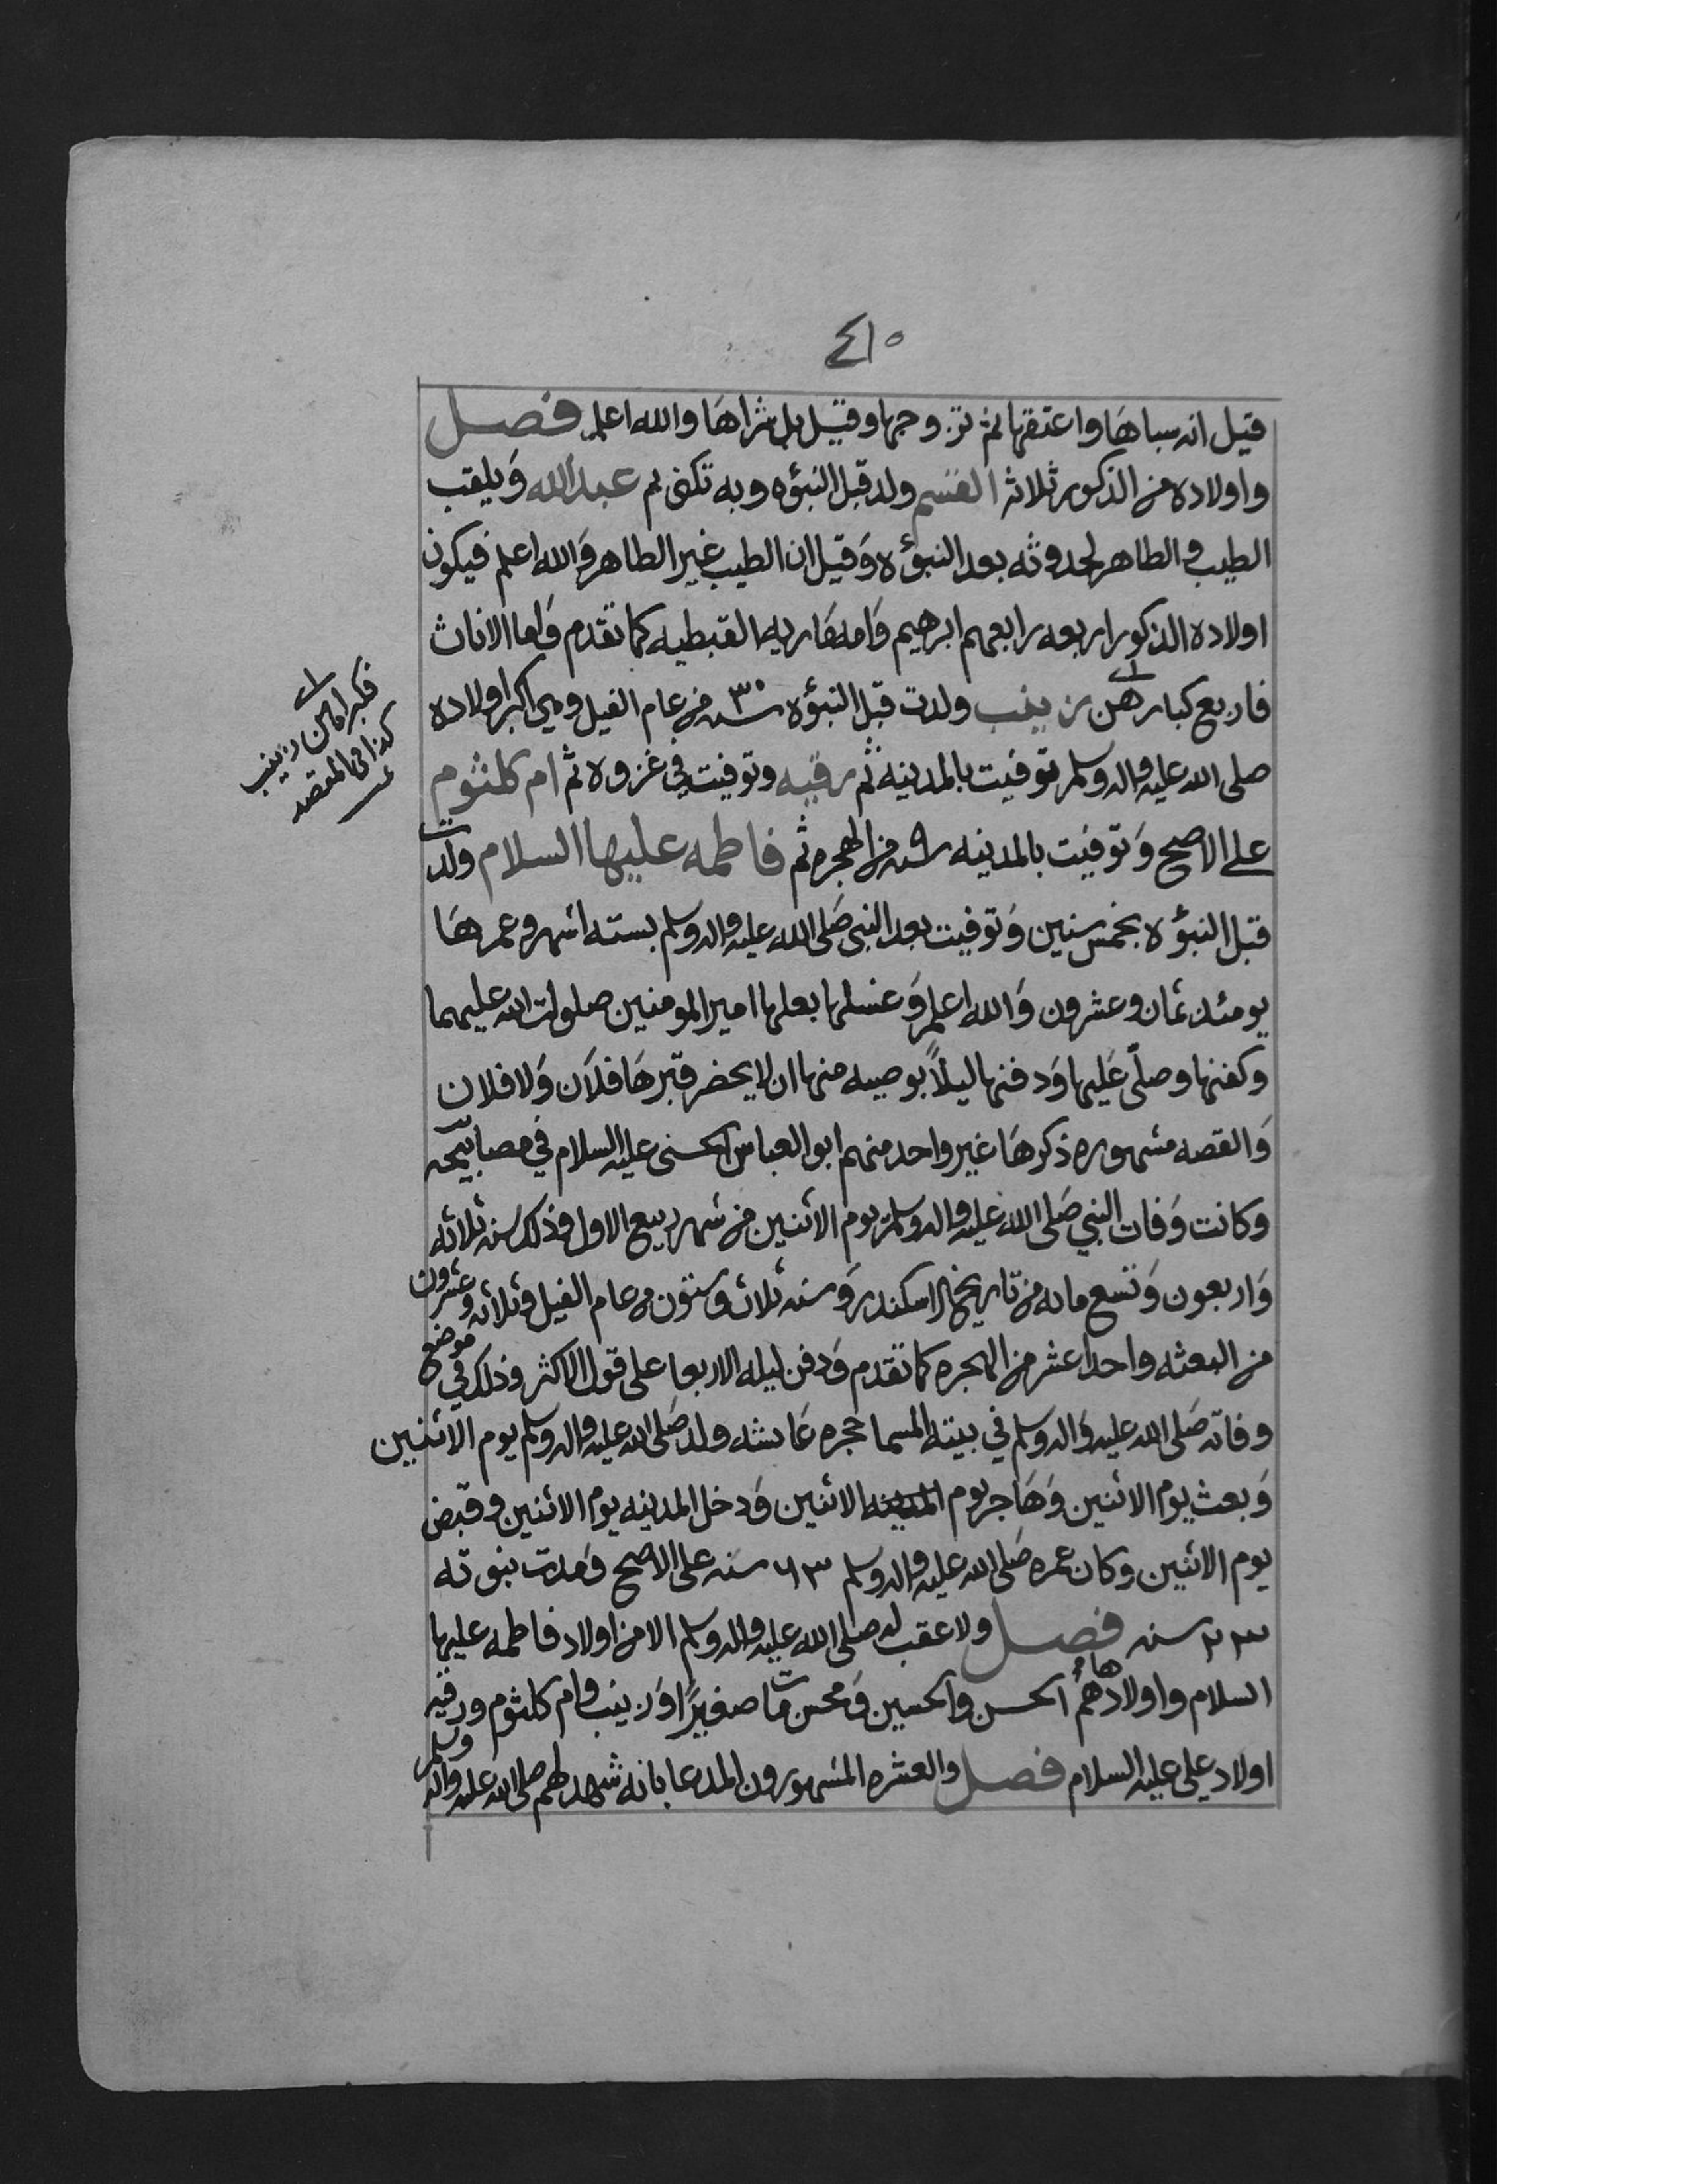 ٤١٥
قيل انه سباها واعتقها ثم تزوجها وقيل بل شراها والله اعلم فصل
واولاده من الذكور ثلاثه القسم ولد قبل النبوه وبه تكنى ثم عبدالله ويلقب
الطيب والطاهر لحدوثه بعد النبوة وقيل ان الطيب غير الطاهر والله اعلم فيكون
اولاده الذكور اربعه رابعهم ابرهيم وامه ماريه القبطيه كما تقدم واما الاناث
فاربع كبارهن زينب ولدت قبل النبوه سنه ٣٠ من عام الفيل وهي اكبر اولاده
صلى الله عليه واله وسلم توفيت بالمدينه ثم رقيه وتوفيت في غزوه ثم ام كلثوم
على الاصح وتوفيت بالمدينه سنه ٩ من الهجره ثم فاطمه عليها السلام ولدت
قبل النبؤة بخمس سنين وتوفيت بعد النبي صلى الله عليه واله وسلم بسته اشهر وعمرها
يومئذ ثمان وعشرون والله اعلم وغسلها بعلها امير المومنين صلوات الله عليهما
وكفنها وصلى عليها ودفنها ليلاً بوصيه منها ان لا يحضر قبرها فلان ولا فلان
والقصه مشهوره ذكرها غير واحد منهم ابو العباس الحسني عليه السلام في مصابيحه
وكانت وفات النبي صلى الله عليه واله وسلم يوم الاثنين من شهر ربيع الاول وذلك سنه ثلاثه
واربعون وتسع مايه من تاريخ الاسكندر وسنه ثلاث وستون من عام الفيل وثلاثه وعشرون
من البعثه واحدا عشر من الهجره كما تقدم ودفن ليله الاربعا على قول الاكثر وذلك في موضع
وفاته صلى الله عليه واله وسلم في بيته المسما حجره عايشه ولد صلى الله عليه واله وسلم يوم الاثنين
وبعث يوم الاثنين وهاجر يوم المدينه الاثنين ودخل المدينه يوم الاثنين وقبض
يوم الاثنين وكان عمره صلى الله عليه واله وسلم ٦٣ سنه على الاصح ومدت نبوته
٢٣ سنه فصل ولا عقب له صلى الله عليه واله وسلم الا من اولاد فاطمه عليها
السلام واولادها هم الحسن والحسين ومحسن مات صغيرا وزينب وام كلثوم ورقيه
اولاد علي عليه السلام فصل والعشره المشهورون المدعا بانه شهد لهم صلى الله عليه واله وسلم
زينب
كذا في المقصد